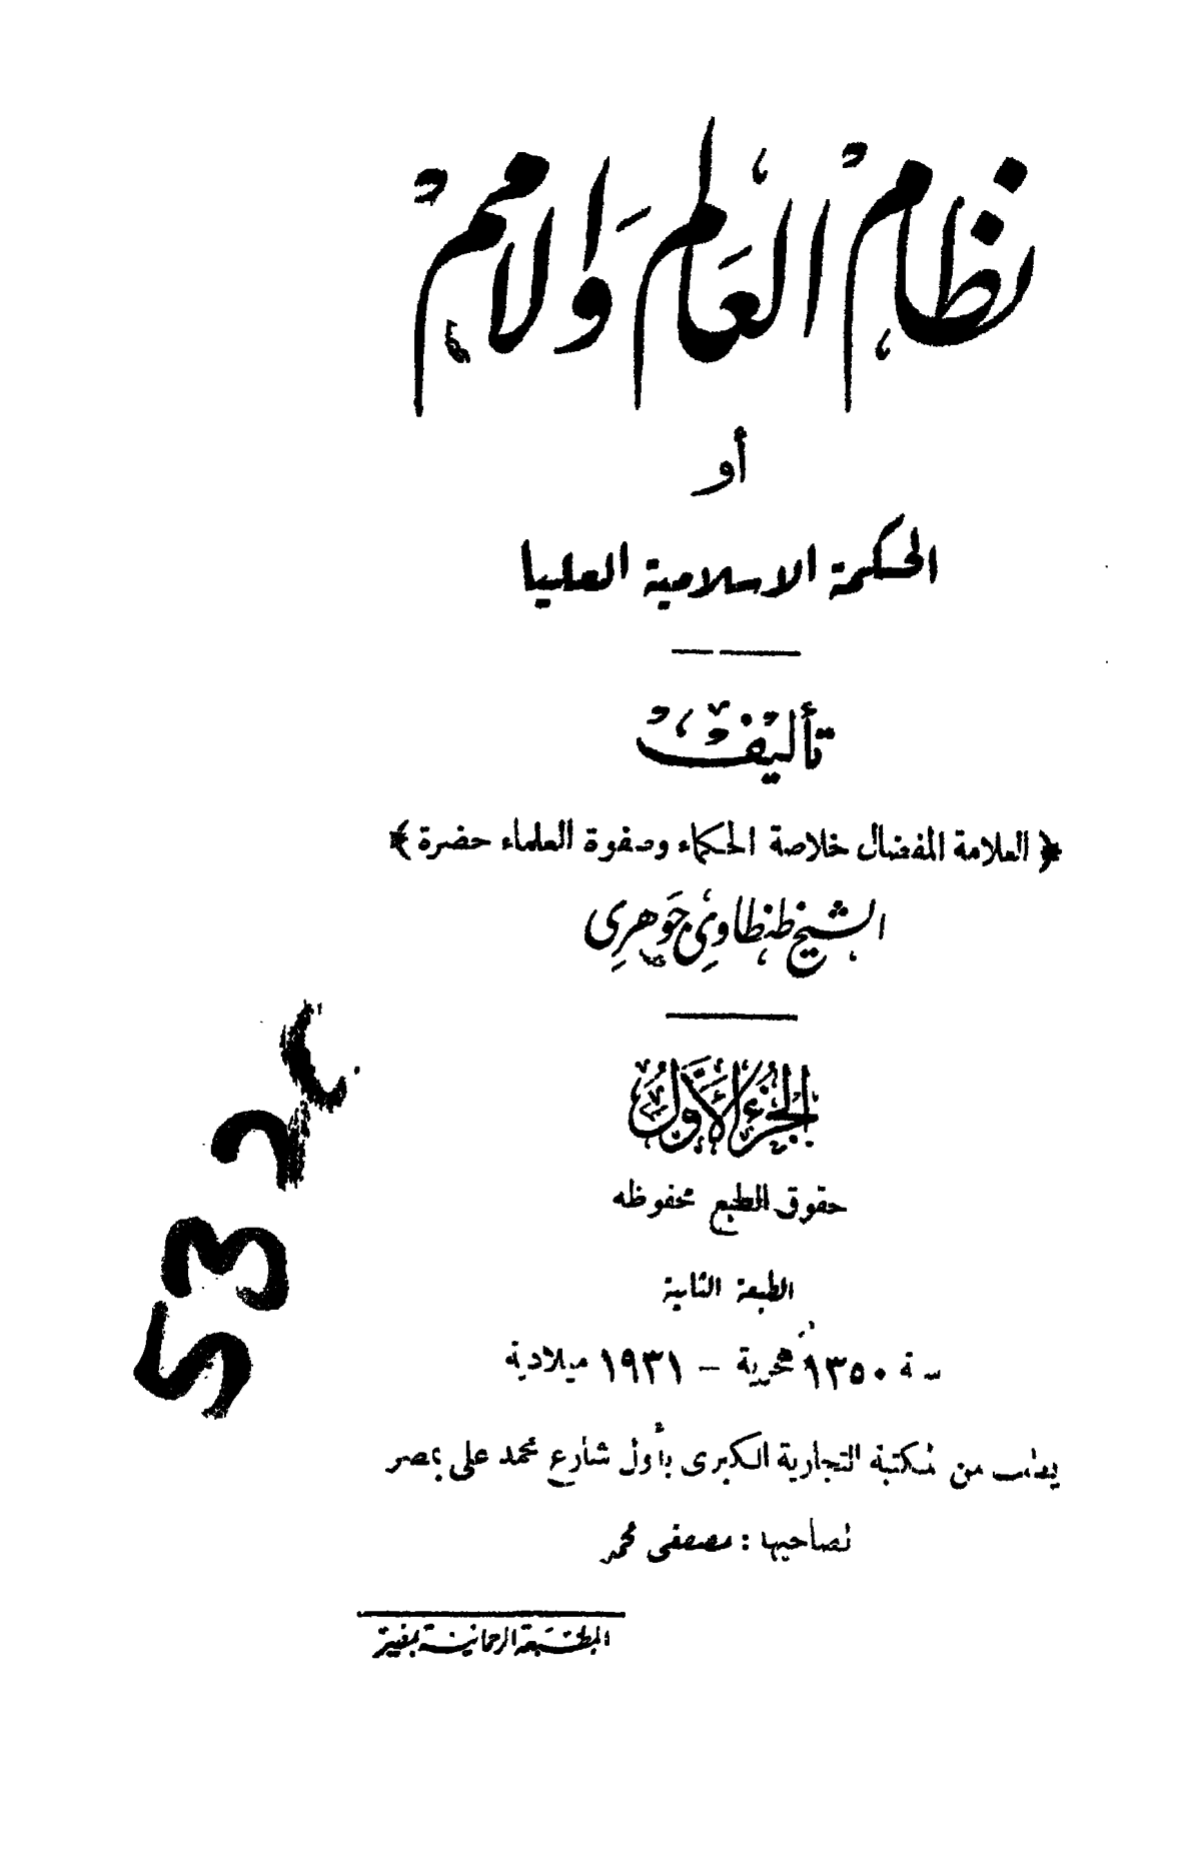 نظام العالم والامم
أو
الحكمة الاسلامية العليا
تأليف
﴿ العلامة المفضال خلاصة الحكماء وصفوة العلماء حضرة ﴾
الشيخ طنطاوي جوهري
الجزء الأول
حقوق الطبع محفوظه
الطبعة الثانية
سنة ١٣٥٠ هجرية – ١٩٣١ ميلادية
يطلب من المكتبة التجارية الكبرى بأول شارع محمد على بمصر
لصاحبها : مصطفى محمد
المطبعة الرحمانية بمصر